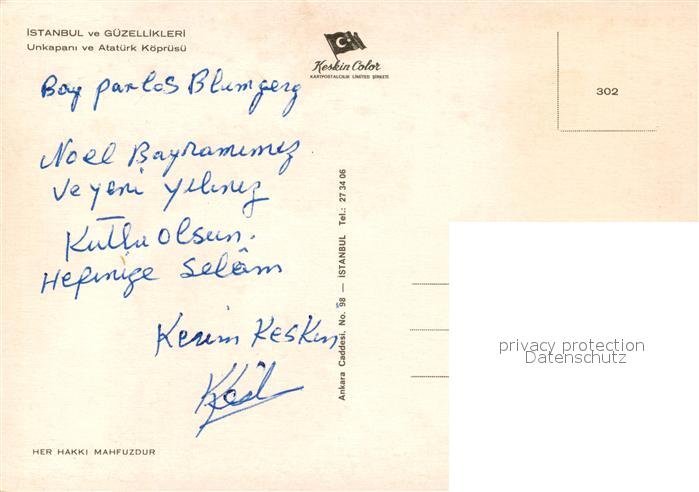 İSTANBUL ve GÜZELLİKLERİ
Unkapanı ve Atatürk Köprüsü
Keskin Color
KARTPOSTALCILIK LİMİTED ŞİRKETİ
302
Bay parlos Blumgerg
Noel Bayramımız
ve yeni yılınız
Kutlu olsun.
Hepinize selâm
Kerim Keskin
Ankara Caddesi, No. 98 — İSTANBUL Tel.: 27 34 06
privacy protection
Datenschutz
HER HAKKI MAHFUZDUR